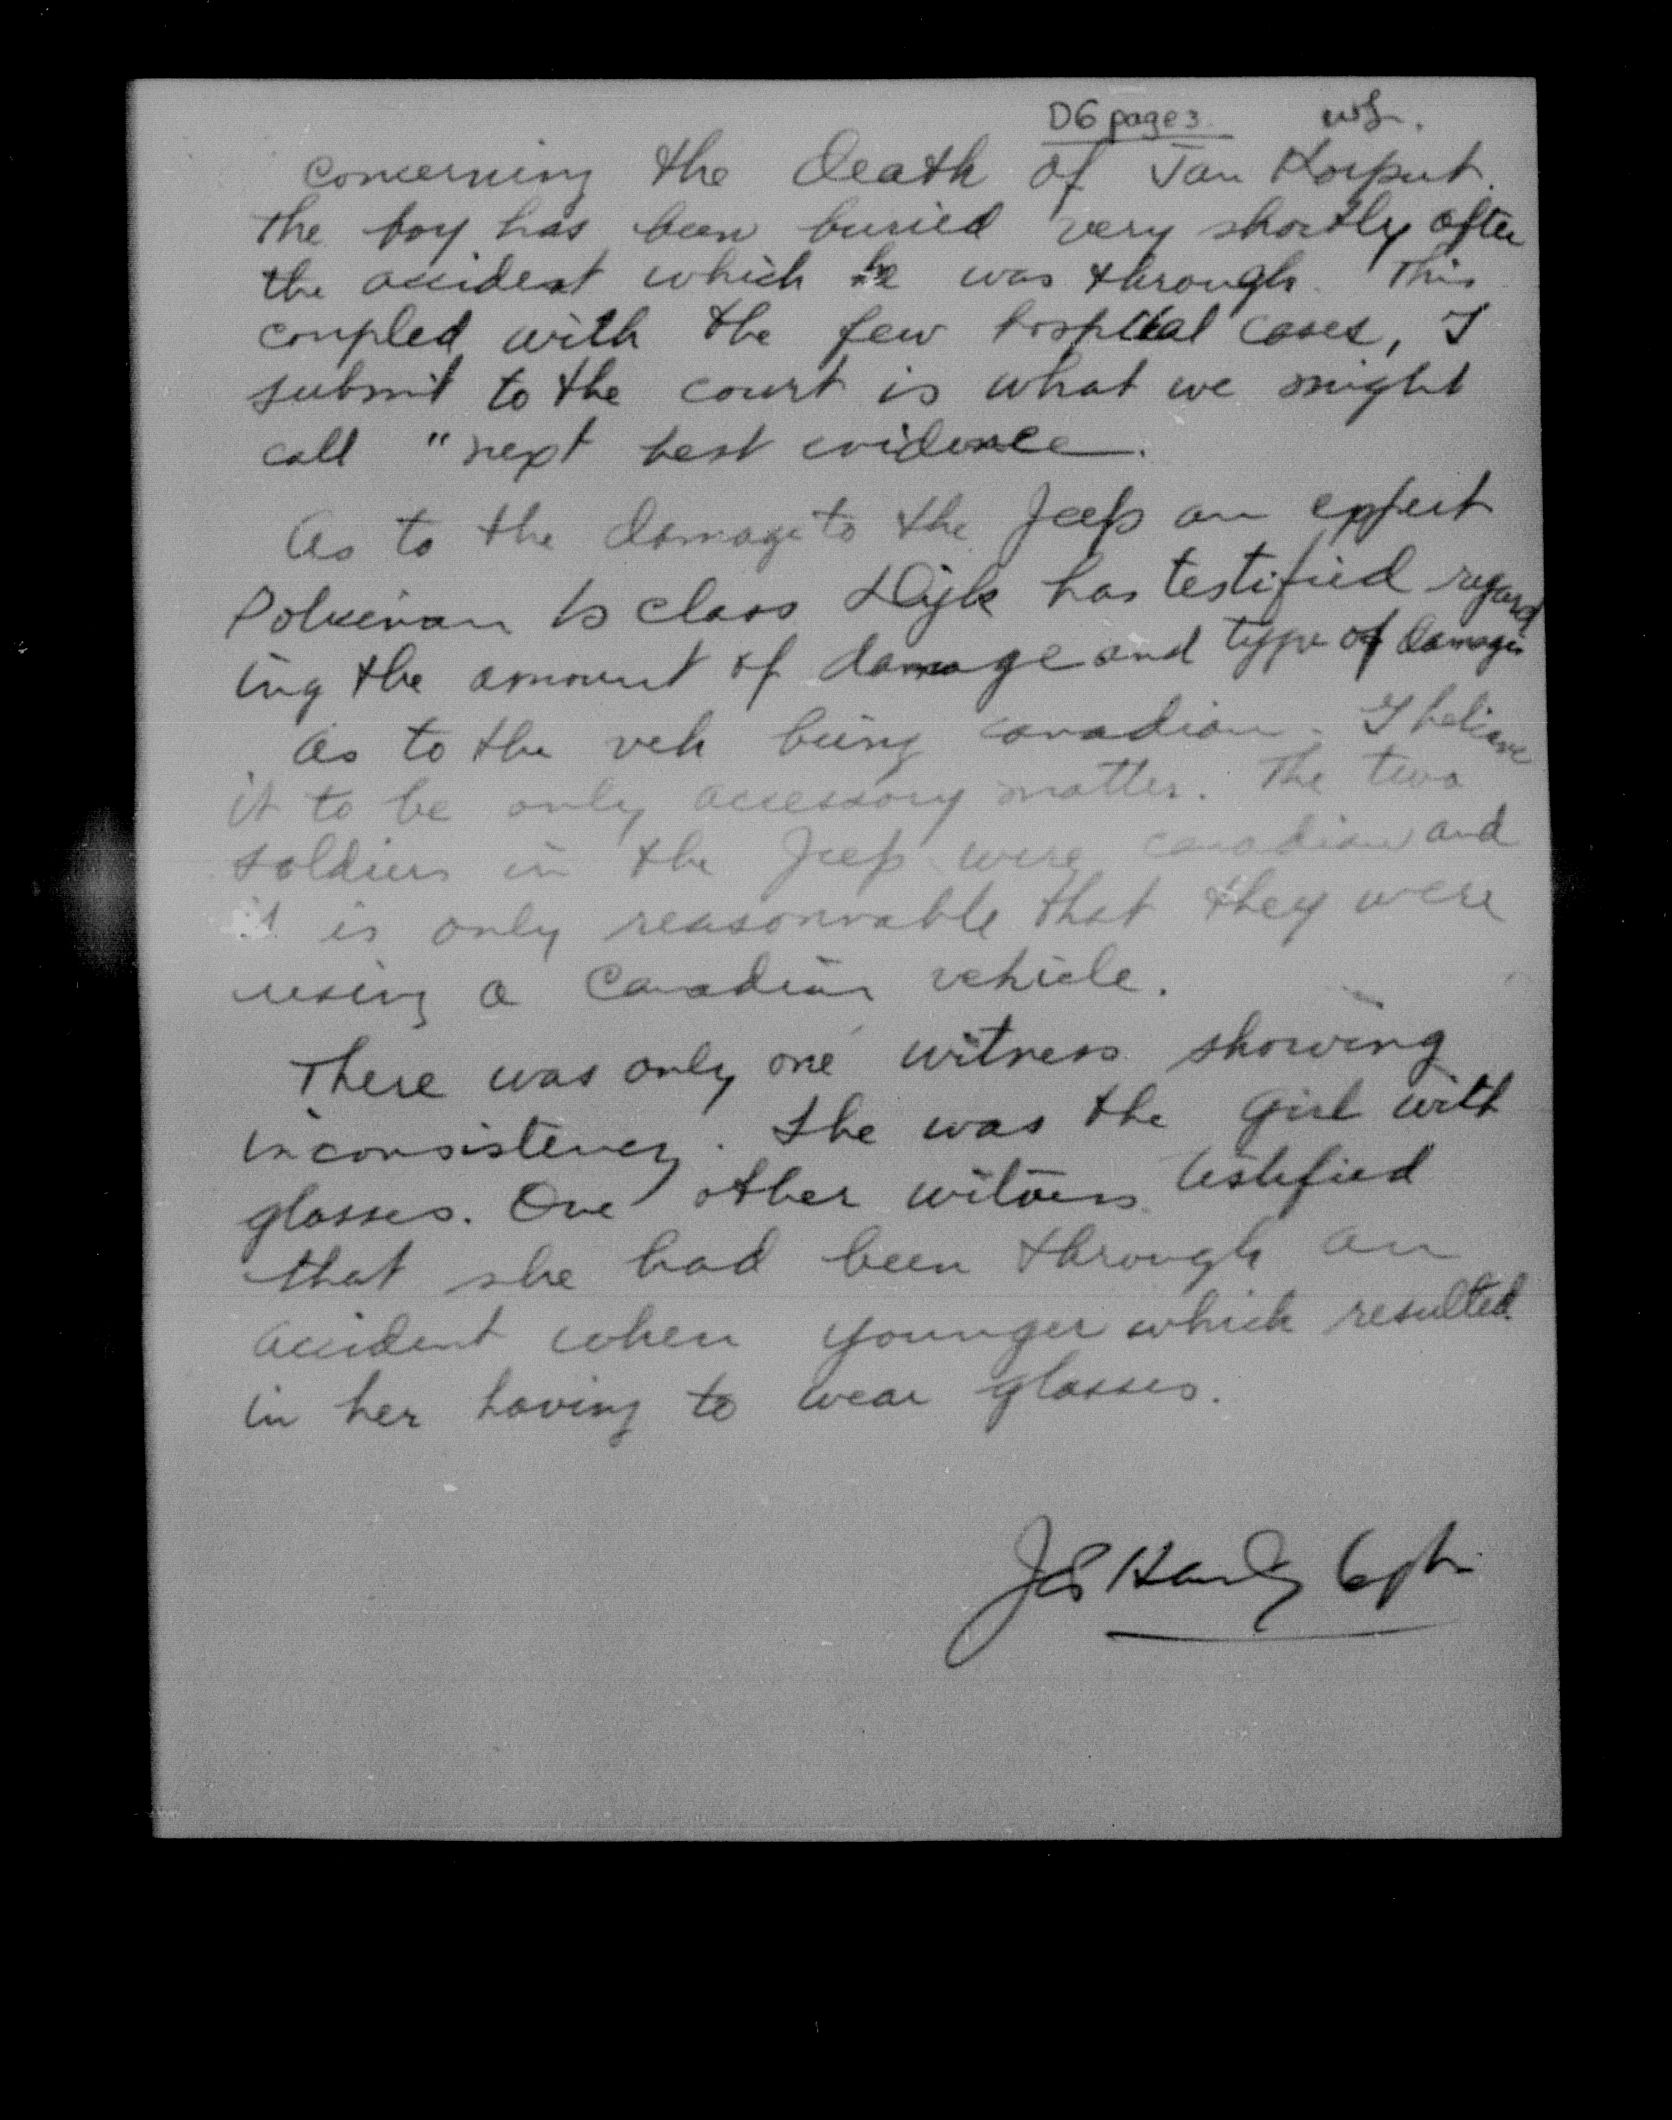 D6 page 3
concerning the death of Jan Korput.
The boy has been buried very shortly after
the accident which he was through. This
coupled with the few hospital cases, I
submit to the court is what we might
call "next best evidence.
As to the damage to the Jeep an expert
Policeman 1s class Dijk has testified regard
ing the amount of damage and type of damage
As to the veh being Canadian. I believe
it to be only accessory matter. The two
soldiers in the Jeep were Canadian and
it is only reasonable that they were
using a Canadian vehicle.
There was only one witness showing
inconsistency. She was the girl with
glasses. One other witness testified
that she had been through an
accident when younger which resulted
in her having to wear glasses.
Capt.